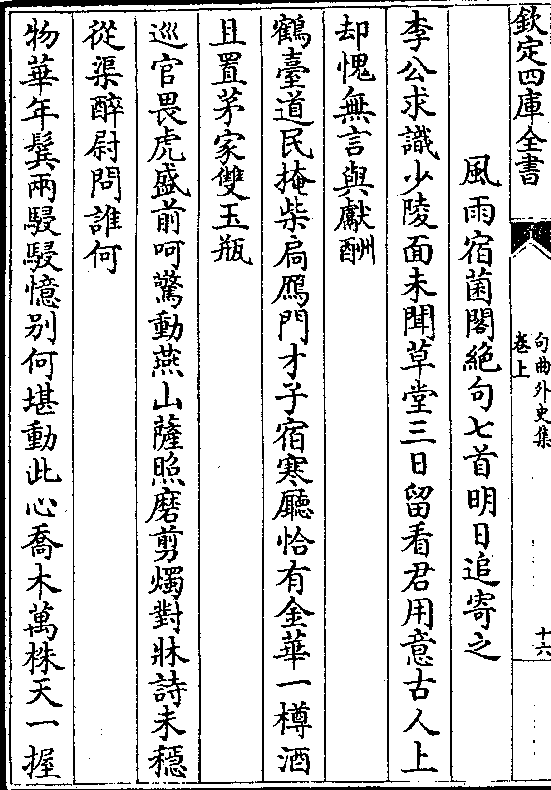 欽定四庫全書
句曲外史集
卷上
十六
風雨宿菌閣絶句七首明日追寄之
李公求識少陵面未聞草堂三日留看君用意古人上
却愧無言與獻酬
鶴臺道民掩柴扃鴈門才子宿寒廳恰有金華一樽酒
且置茅家雙玉瓶
巡官畏虎盛前呵驚動燕山薩照磨剪燭對牀詩未穏
從渠醉尉問誰何
物華年鬂兩駸駸憶别何堪動此心喬木萬株天一握